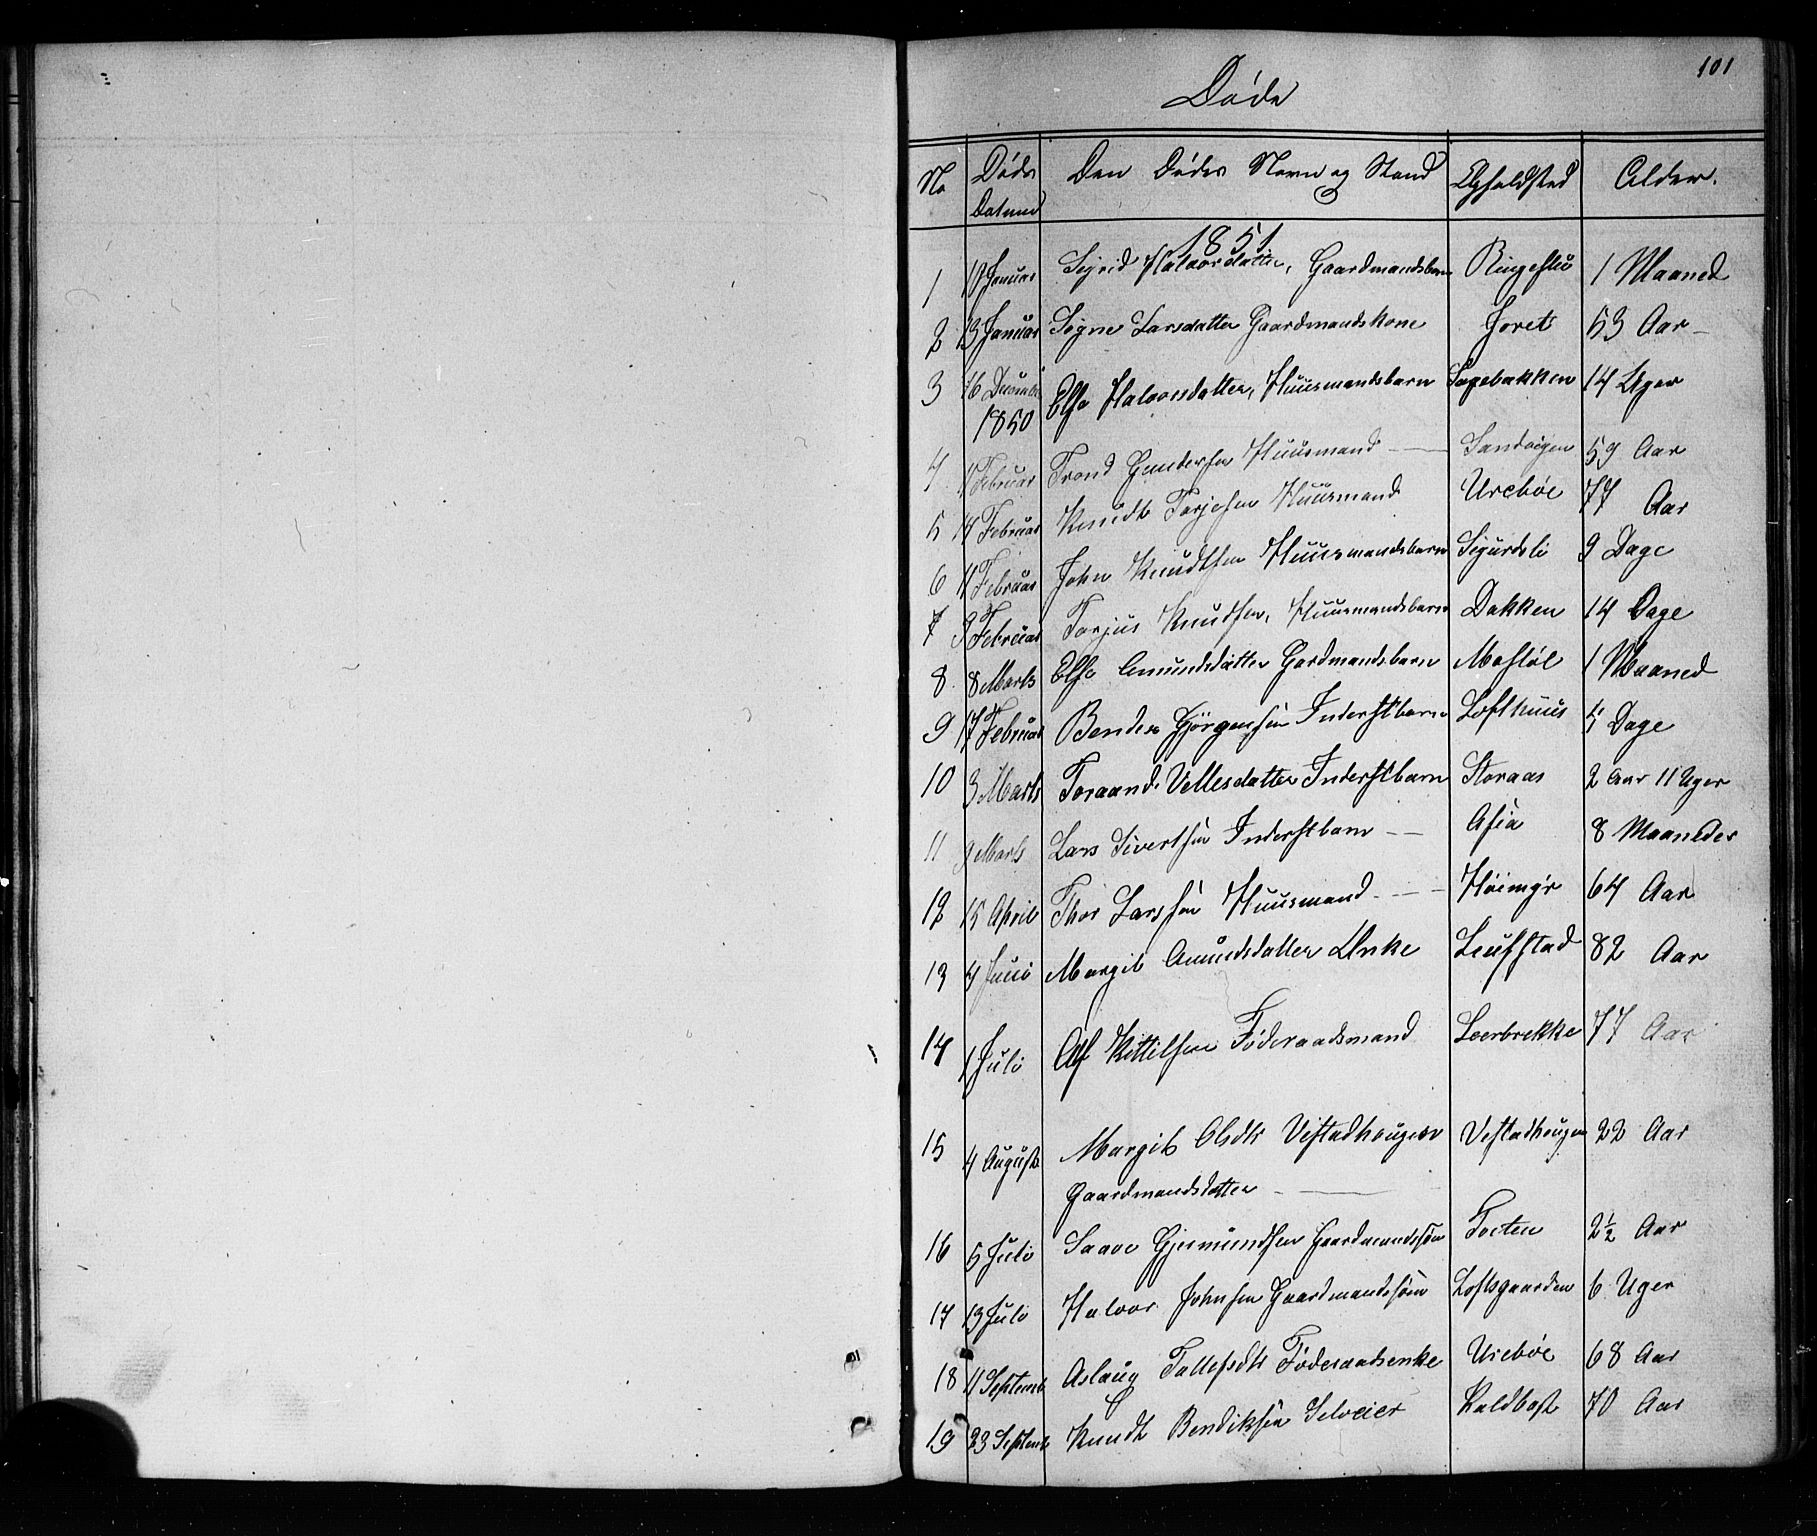 101
Døde
No Døds Datum Den Dødes Navn og Stand Opholdsted Alder.
1851
1 Januar Sigrid Halvorsdatter, Gaardmandsbarn 1 Maaned
2 13 Januar Signe Larsdatter Gaardmandskone Joret 53 Aar
3 16 December 1850 Halvorsdatter, Huusmandsbarn Sagebakken 14 Uger
4 Februar Trond Gundersen Huusmand Sandvigen 59 Aar
5 14 Februar Knudt Tarjesen Huusmand Urebøe 77 Aar
6 11 Februar John Knudtsen Huusmandsbarn Sigurdsli 9 Dage
7 9 Februar Torjus Knudsen, Huusmandsbarn Bakken 14 Dage
8 8 Marts Amundsdatter Gardmandsbarn Mostøl 1 Maaned
9 17 Februar Jørgensen Inderstbarn Lofthuus 5 Dage
10 3 Marts Toraand Vellesdatter Inderstbarn Storaas 2 Aar 11 Uger
11 9 Marts Lars Sivertsen Inderstbarn Asia 8 Maaneder
12 15 April Thor Larssen Huusmand Høimyr 64 Aar
13 4 Juni Margit Amundsdatter Enke 82 Aar
14 1 Juli Kittilsen Føderaadsmand Leerbrekke 77 Aar
15 4 August Margit Olsdtr Vestadhougen Vestadhougen 22 Aar
Gaardmandsdatter
16 5 Juli Saave Gjermundsen Gaardmandssøn 2½ Aar
17 13 Juli Halvor Johnsen Gaardmandssøn Loftsgaarden 6 Uger
18 11 Septemb Aslaug Tallefsdtr Føderaadsenke Urebøe 68 Aar
19 23 Septemb Knudt Bendiksen Selveier Kaldbast 70 Aar